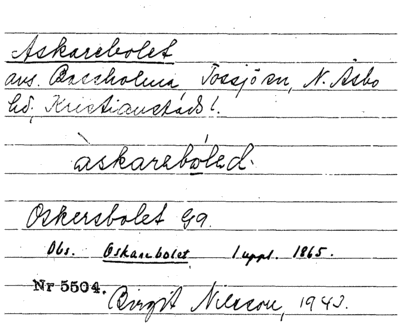 Askarebolet
avs. Baccholma, Tossjö sn, N. Åsbo
hd, Kristianstads l.
àskarebó̤led.
Oskersbolet Ga.
Obs. Oskarebolet 1 uppl. 1865.
Nr 5504.
Birgit Nilsson, 1943.